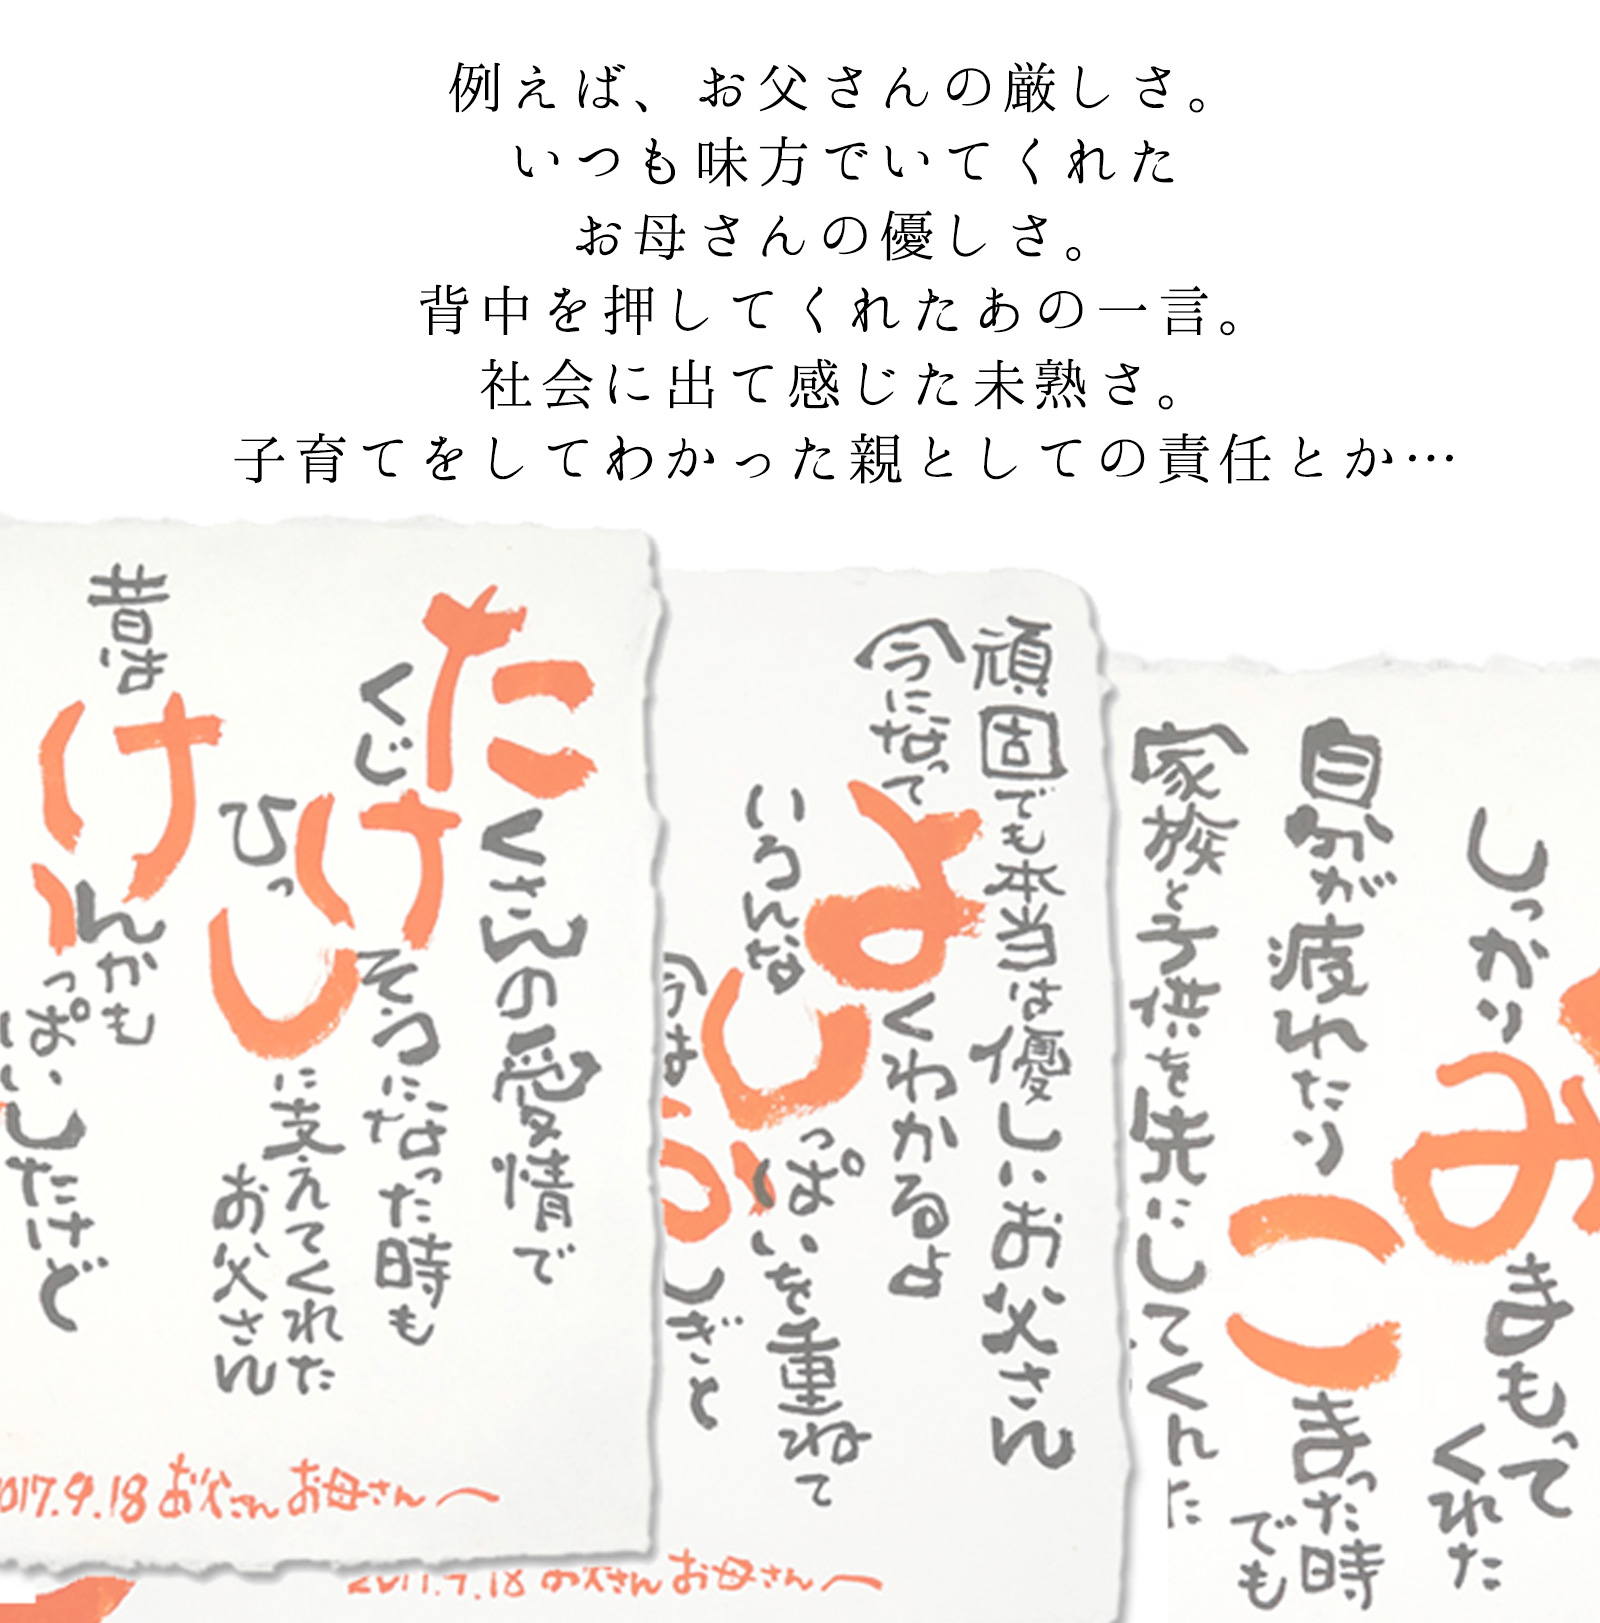 例えば、お父さんの厳しさ。
いつも味方でいてくれた
お母さんの優しさ。
背中を押してくれたあの一言。
社会に出て感じた未熟さ。
子育てをしてわかった親としての責任とか…
たくさんの愛情で
くじけそうになった時も
ひっしに支えてくれた
お父さん
昔は
けんかも
いっぱいしたけど
2017.9.18 お父さんお母さんへ
頑固でも本当は優しいお父さん
今になって
よくわかるよ
いろんな
しっぱいを重ねて
今は
しぎと
2017.9.18 お父さんお母さんへ
しっかり
みまもって
くれた
自分が疲れたり
こまった時
でも
家族と子供を先にしてくれた